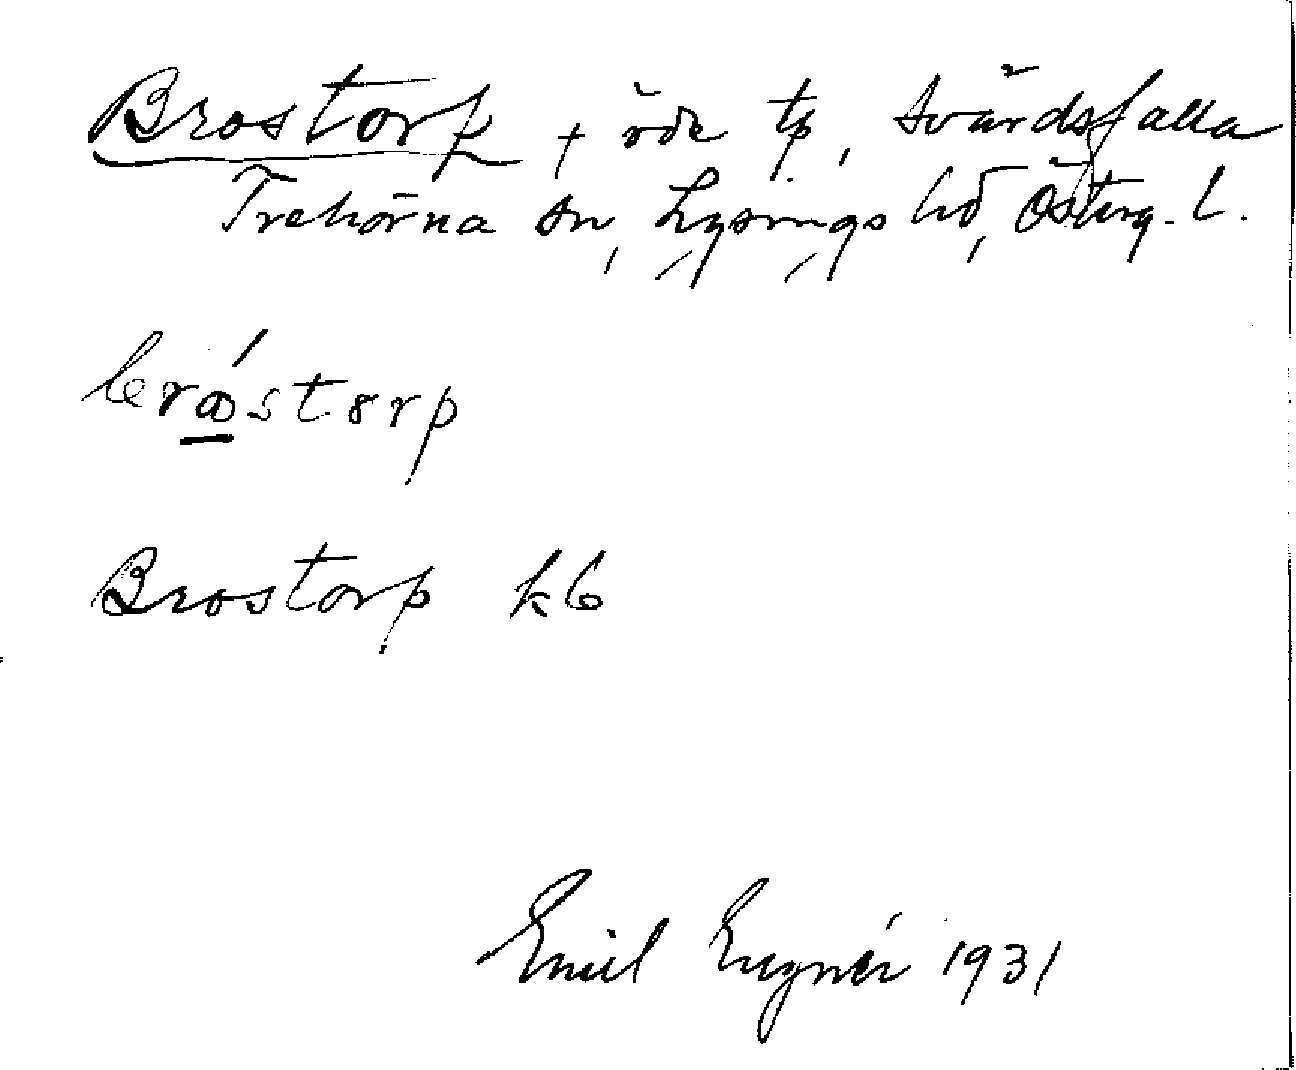 Brostorp + öde tp, Svärdsfalla
Trehörna sn, Lysings hd, Österg. l.
brǿstorp
Brostorp kb
Emil Engnér 1931